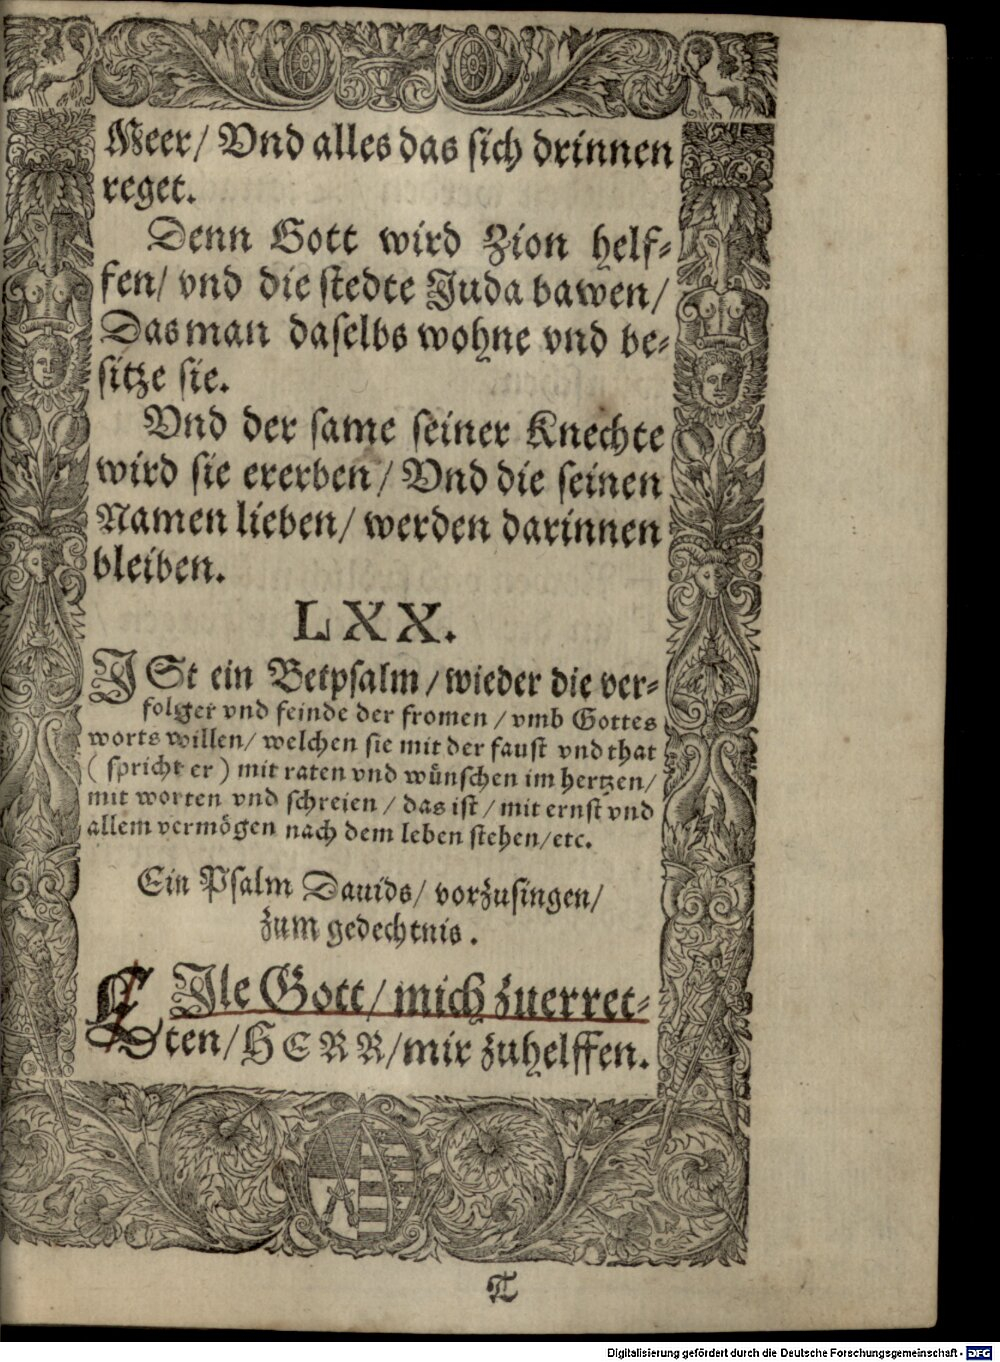 Meer/ Vnd alles das sich drinnen
reget.
Denn Gott wird Zion helf-
fen/ vnd die stedte Juda bawen/
Das man daselbs wohne vnd be-
sitze sie.
Vnd der same seiner Knechte
wird sie ererben/ Vnd die seinen
Namen lieben/ werden darinnen
bleiben.
LXX.
JSt ein Betpsalm/ wieder die ver-
folger vnd feinde der fromen/ vmb Gottes
worts willen/ welchen sie mit der faust vnd that
( spricht er ) mit raten vnd wünschen im hertzen/
mit worten vnd schreien/ das ist/ mit ernst vnd
allem vermögen nach dem leben stehen/ etc.
Ein Psalm Dauids/ vorzusingen/
zum gedechtnis.
EJle Gott/ mich zuerret-
ten/ HERR/ mir zuhelffen.
T
Digitalisierung gefördert durch die Deutsche Forschungsgemeinschaft - DFG